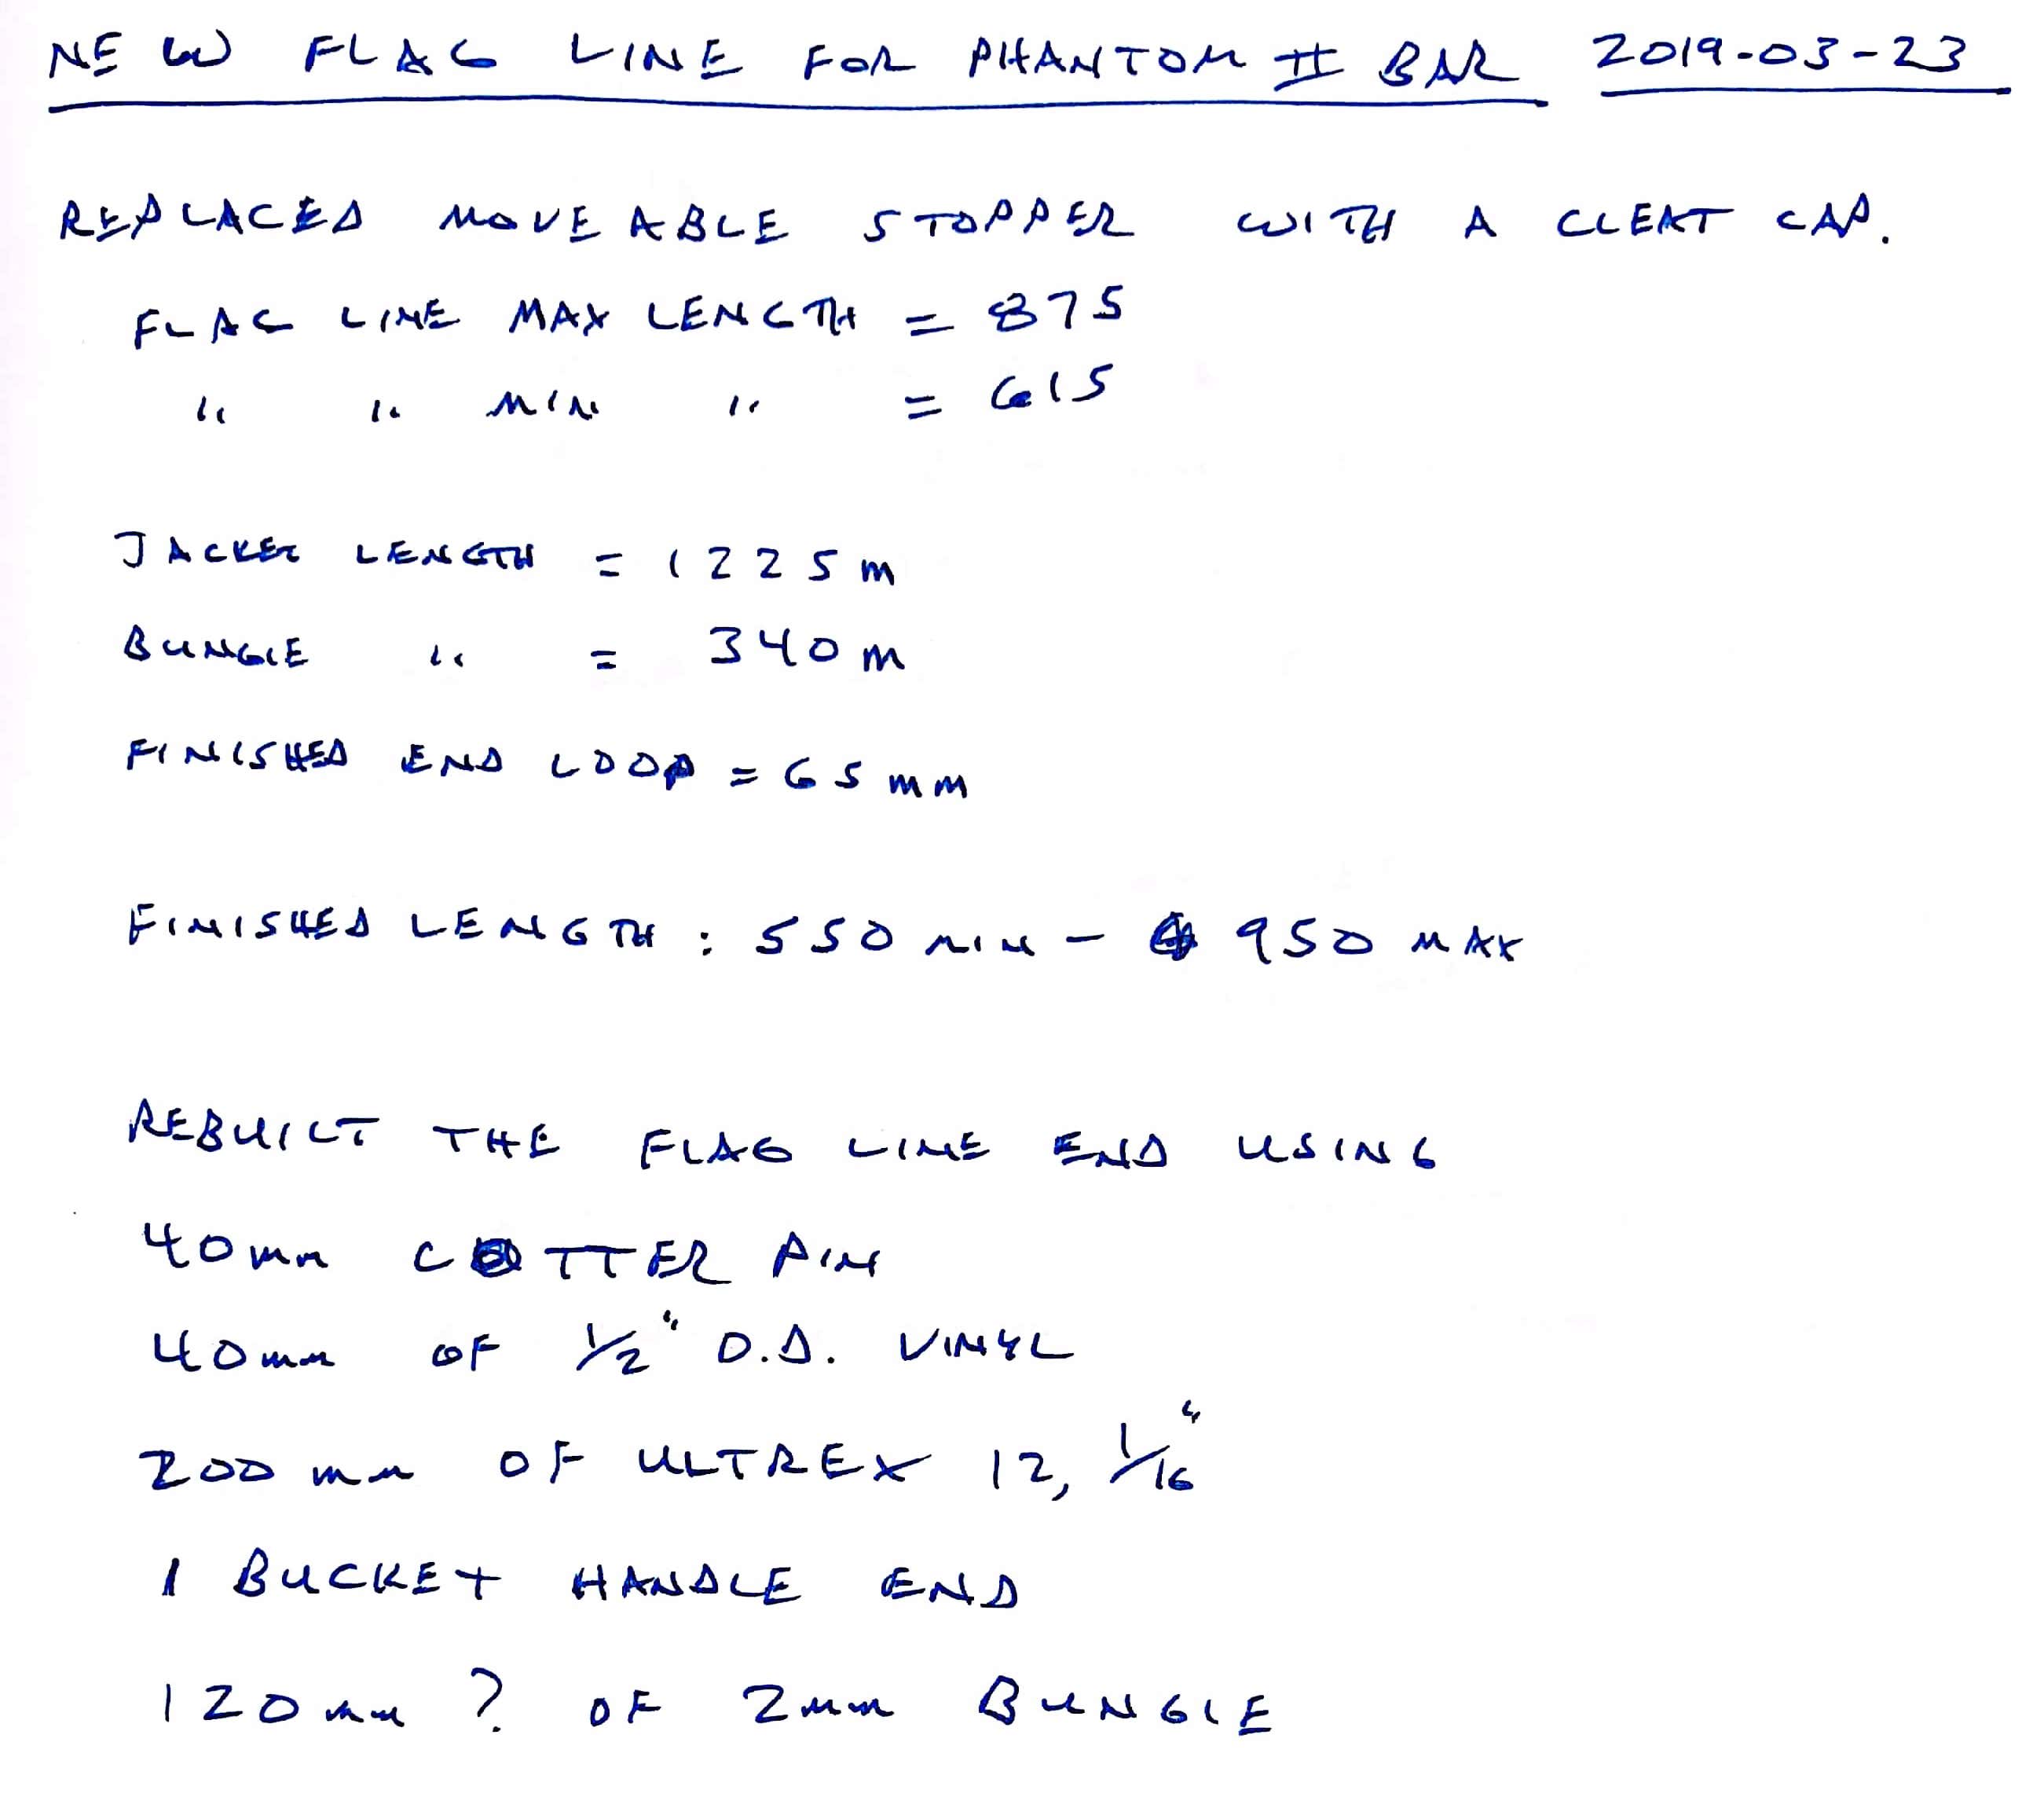 NEW FLAG LINE FOR PHANTOM II BAR 2019-03-23
REPLACED MOVEABLE STOPPER WITH A CLEAT CAP.
FLAG LINE MAX LENGTH = 875
" " MIN " = 615
JACKET LENGTH = 1225 m
BUNGIE " = 340 m
FINISHED END LOOP = 65 mm
FINISHED LENGTH : 550 MIN - 950 MAX
REBUILT THE FLAG LINE END USING
40mm COTTER PIN
40mm OF 1/2" O.D. VINYL
200 mm OF ULTREX 12, 1/16"
1 BUCKET HANDLE END
120mm ? OF 2mm BUNGIE